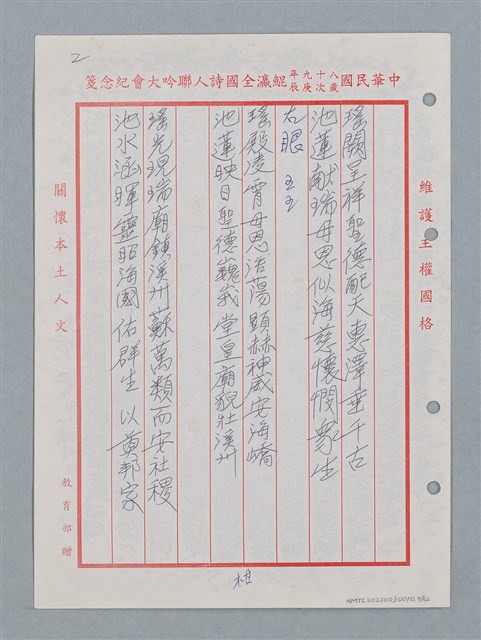 2
中華民國八十九年歲次庚辰鯤瀛全國詩人聯吟大會紀念箋
維護主權國格
瑤闕呈祥聖德配天惠澤垂千古
池蓮獻瑞母恩似海慈懷憫眾生
右眼 王王
瑤殿凌霄母恩浩蕩顯赫神威安海嶠
池蓮映日聖德巍峩堂皇廟貌壯溪州
瑤光現瑞廟鎮溪州蘇萬類而安社稷
池水涵暉靈昭海國佑群生以奠邦家
關懷本土人文
教育部贈